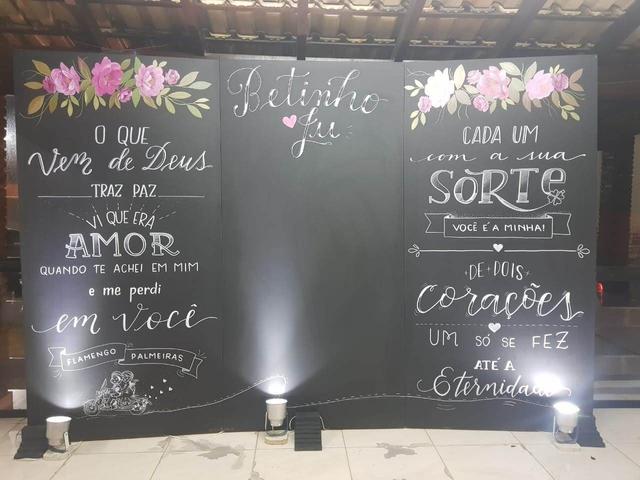 O QUE
Vem de Deus
TRAZ PAZ
VI QUE ERA
AMOR
QUANDO TE ACHEI EM MIM
e me perdi
em você
FLAMENGO PALMEIRAS
Betinho
Ju
CADA UM
com a sua
SORTE
VOCÊ É A MINHA!
DE DOIS
corações
UM SÓ SE FEZ
ATÉ A
Eternidade